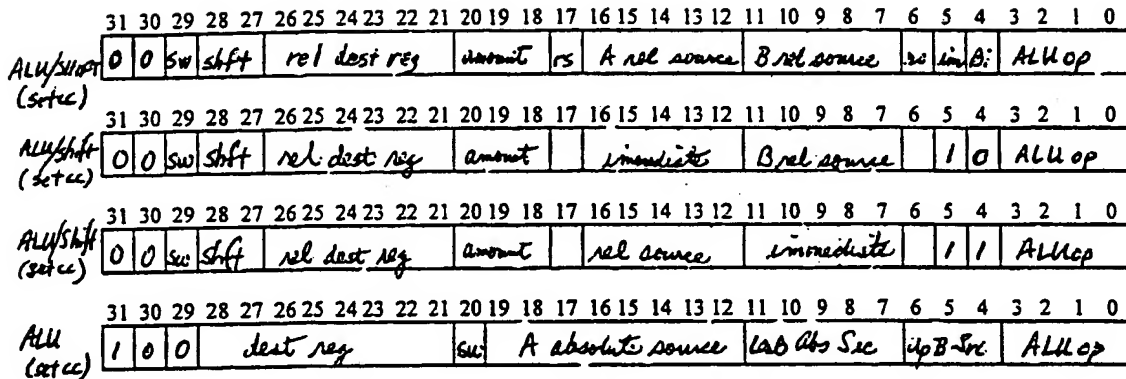 31 30 29 28 27 26 25 24 23 22 21 20 19 18 17 16 15 14 13 12 11 10 9 8 7 6 5 4 3 2 1 0
ALU/Shift 0 0 sw shft rel dest reg amount rs A rel source B rel source im Bi ALU op
(setcc)
31 30 29 28 27 26 25 24 23 22 21 20 19 18 17 16 15 14 13 12 11 10 9 8 7 6 5 4 3 2 1 0
ALU/Shft 0 0 sw Shft rel dest reg amount immediate B rel source 1 0 ALU op
(setcc)
31 30 29 28 27 26 25 24 23 22 21 20 19 18 17 16 15 14 13 12 11 10 9 8 7 6 5 4 3 2 1 0
ALU/Shft 0 0 sw Shft rel dest reg amount rel source immediate 1 1 ALU op
(setcc)
31 30 29 28 27 26 25 24 23 22 21 20 19 18 17 16 15 14 13 12 11 10 9 8 7 6 5 4 3 2 1 0
ALU 1 0 0 dest reg sw A absolute source Abs Src B-Src ALU op
(setcc)